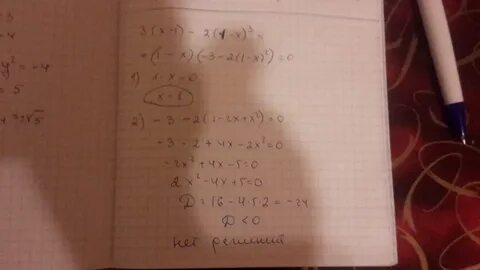 -3
-4
y² = -4
= 5
= ±√5
3(x-1) - 2(1-x)³ =
= (1-x)(-3-2(1-x)²) = 0
1) 1-x=0
x=1
2) -3-2(1-2x+x²)=0
-3-2+4x-2x²=0
-2x²+4x-5=0
2x²-4x+5=0
D=16-4·5·2=-24
D<0
нет решений